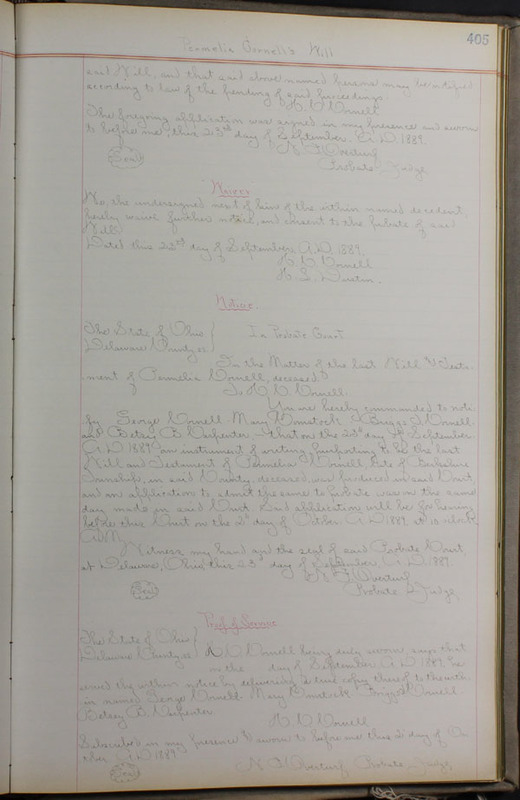 405
Permelia Gornell's Will
said Will, and that said above named persons may be notified
according to law of the pending of said proceedings.
H. V. Gornell
The foregoing application was signed in my presence and sworn
to before me, this 23rd day of September A.D. 1889.
(Seal) N. F. Overturf
Probate Judge
Waiver
We, the undersigned next of kin of the within named decedent,
hereby waive further notice, and consent to the probate of said
Will.
Dated this 23rd day of September A.D. 1889.
H. V. Gornell
H. L.
Notice.
The State of Ohio } In Probate Court
Delaware County ss
In the Matter of the last Will & Testa-
ment of Permelia Gornell, deceased
To H. V. Gornell.
You are hereby commanded to noti-
fy George Gornell, Mary Briggs Gornell
and Betsey B. Carpenter that on the 23d day of September
A.D. 1889 an instrument of writing purporting to be the last
Will and Testament of Permelia Gornell late of Berkshire
Township, in said County, deceased, was produced in said Court
and an application to admit the same to Probate was on the same
day made in said Court. Said application will be for hearing
before this Court on the 2d day of October A.D. 1889, at 10 o'clock
A.M.
Witness my hand and the seal of said Probate Court,
at Delaware, Ohio this 23d day of September A.D. 1889.
N. F. Overturf
(Seal) Probate Judge
Proof of Service
The State of Ohio }
Delaware County ss H. V. Gornell being duly sworn, says that
on the day of September A.D. 1889, he
served the within notice by delivering a true copy thereof to the with-
in named George Gornell, Mary Briggs Gornell
Betsey B. Carpenter
H. V. Gornell
Subscribed in my presence & sworn to before me this 2 day of Oc-
tober A.D. 1889
(Seal) N. F. Overturf Probate Judge